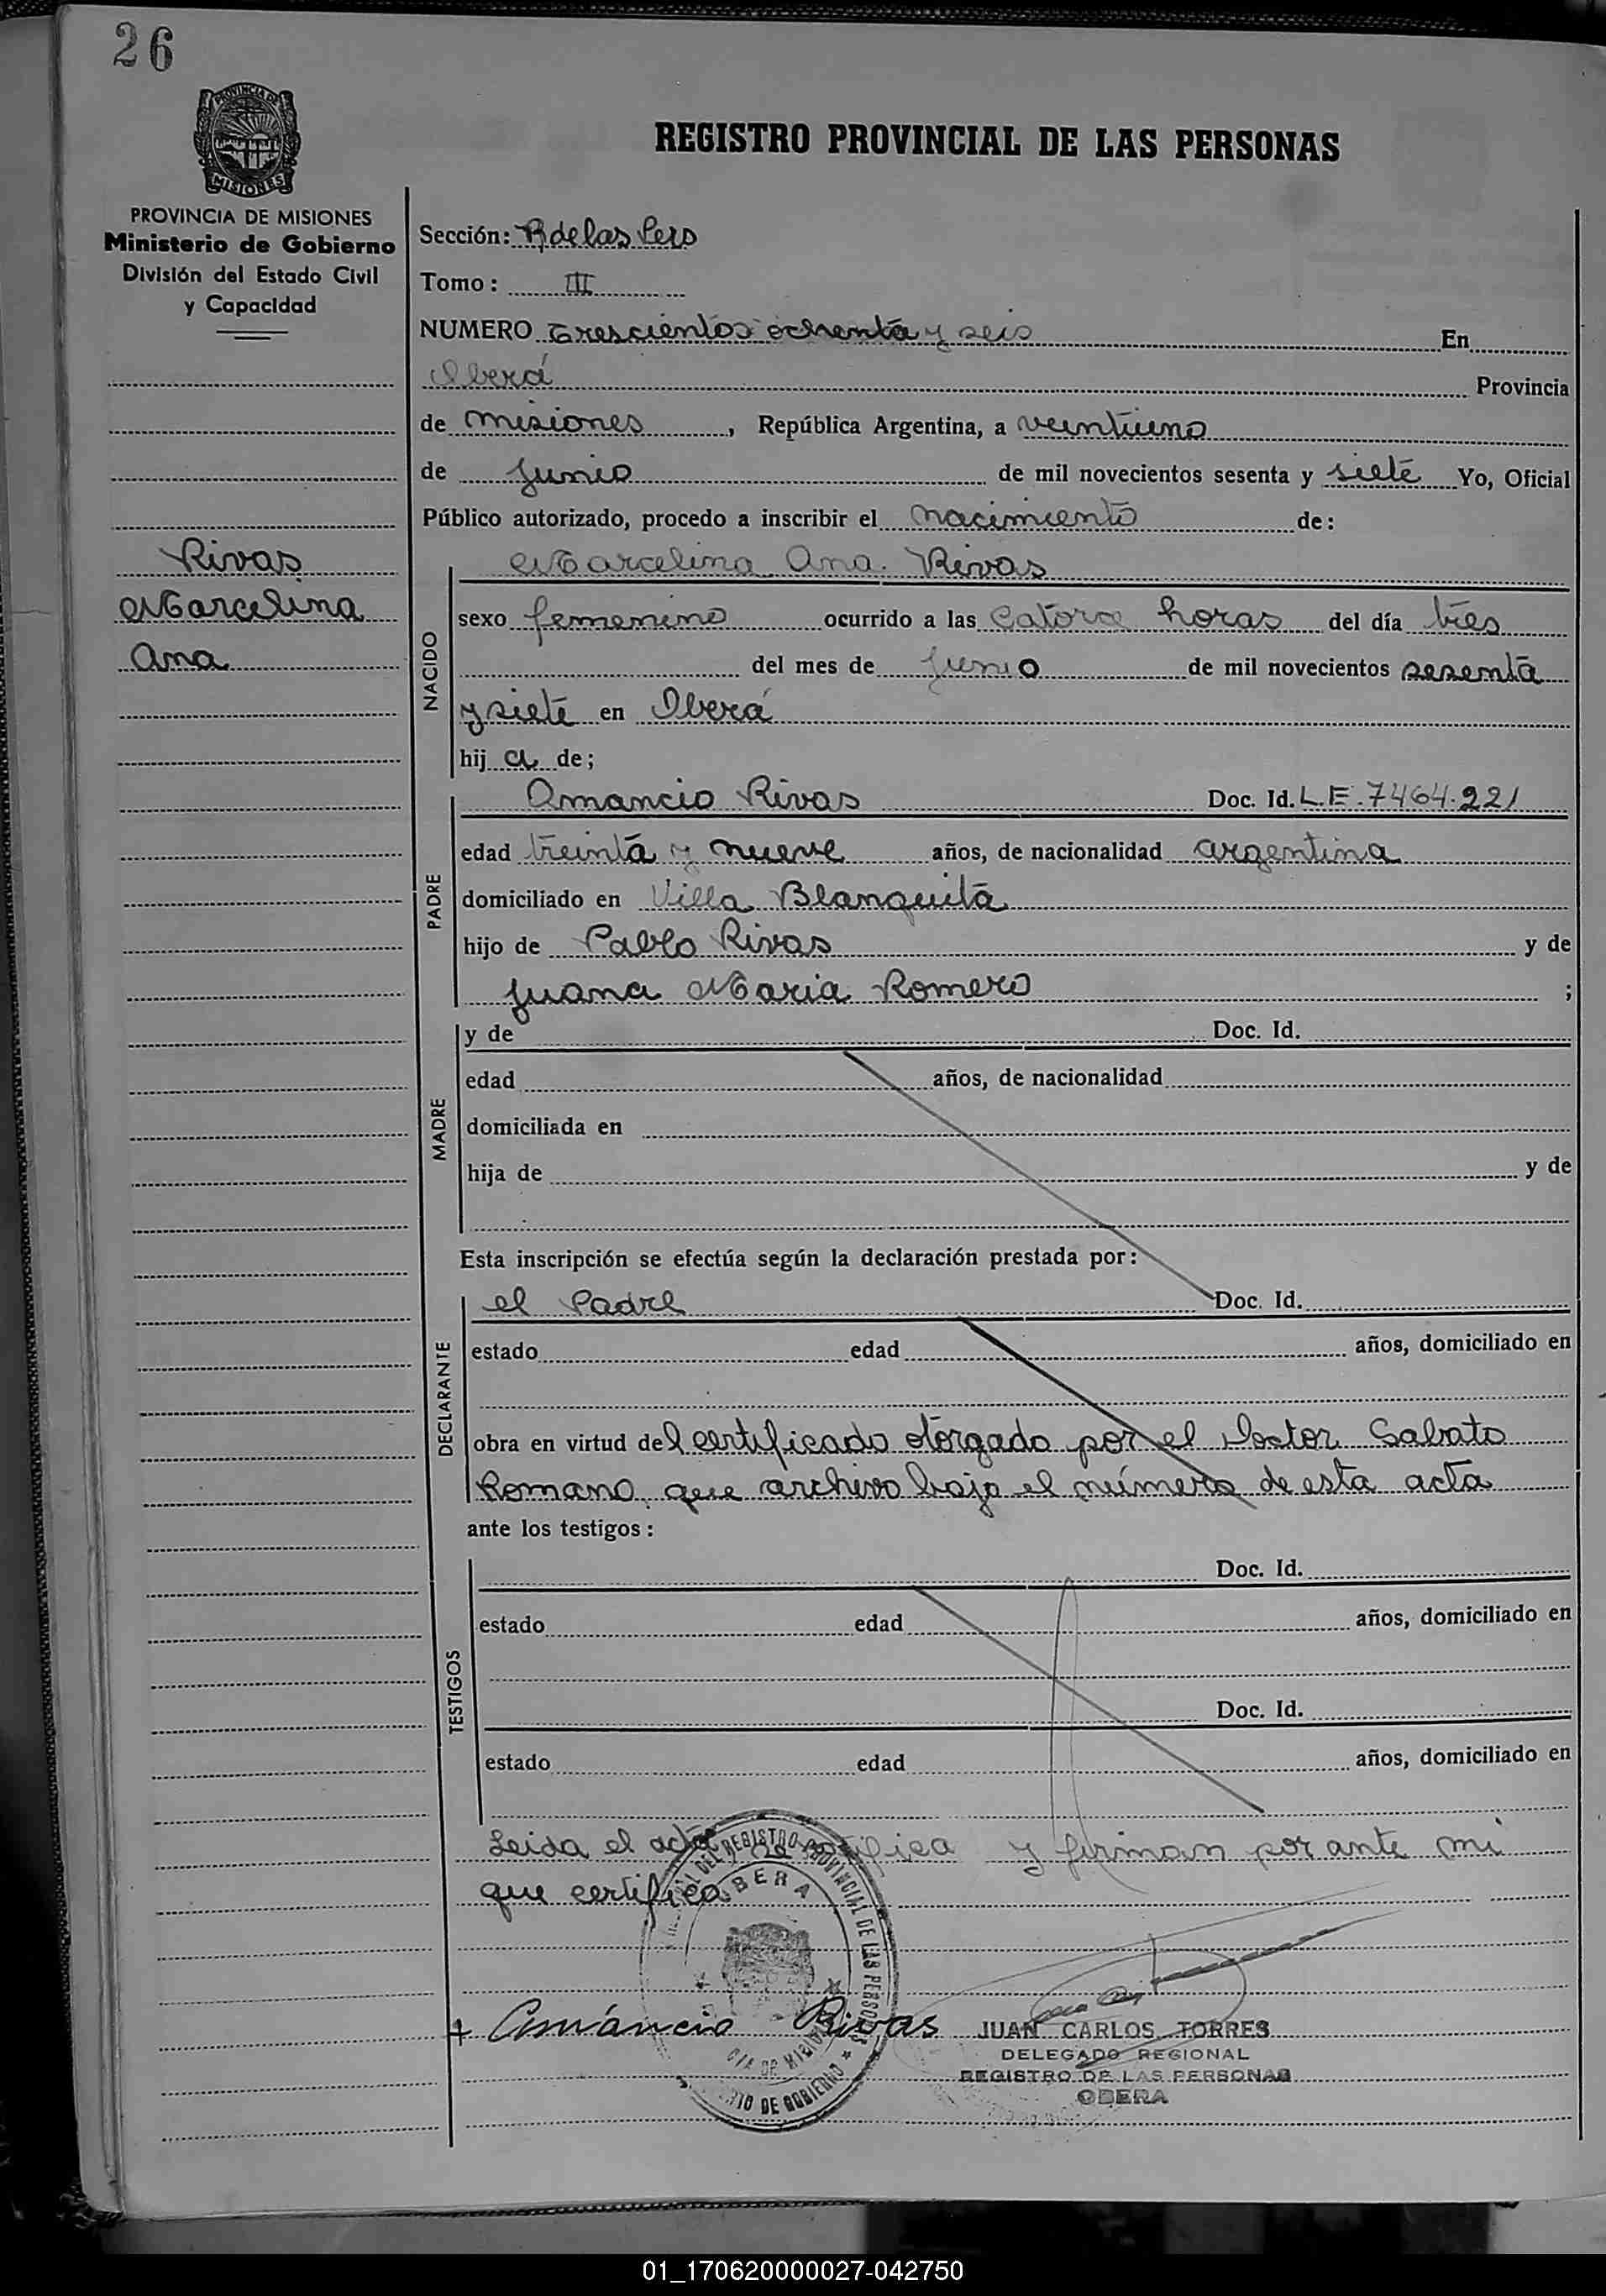 26
PROVINCIA DE
MISIONES
REGISTRO PROVINCIAL DE LAS PERSONAS
PROVINCIA DE MISIONES
Ministerio de Gobierno
División del Estado Civil
y Capacidad
Rivas
Marcelina
Ana
Sección: R de las Pers
Tomo: III
NUMERO trescientos ochenta y seis En
Oberá Provincia
de misiones, República Argentina, a veintiuno
de Junio de mil novecientos sesenta y siete Yo, Oficial
Público autorizado, procedo a inscribir el nacimiento de:
NACIDO
Marcelina Ana Rivas
sexo femenino ocurrido a las catorce horas del día tres
del mes de Junio de mil novecientos sesenta
y siete en Oberá
hija de;
PADRE
Amancio Rivas Doc. Id. L.E. 7464.221
edad treinta y nueve años, de nacionalidad argentina
domiciliado en Villa Blanquita
hijo de Pablo Rivas y de
Juana Maria Romero ;
MADRE
y de Doc. Id.
edad años, de nacionalidad
domiciliada en
hija de y de
Esta inscripción se efectúa según la declaración prestada por:
DECLARANTE
el Padre Doc. Id.
estado edad años, domiciliado en
obra en virtud del certificado otorgado por el Doctor Sabato
Romano, que archivo bajo el número de esta acta
ante los testigos:
TESTIGOS
Doc. Id.
estado edad años, domiciliado en
Doc. Id.
estado edad años, domiciliado en
Leida el acta y firman por ante mi
que certifico
DEL REGISTRO PROVINCIAL DE LAS PERSONAS
OBERA
DE GOBIERNO
Amáncio Rivas
JUAN CARLOS TORRES
DELEGADO REGIONAL
REGISTRO DE LAS PERSONAS
OBERA
01_170620000027-042750